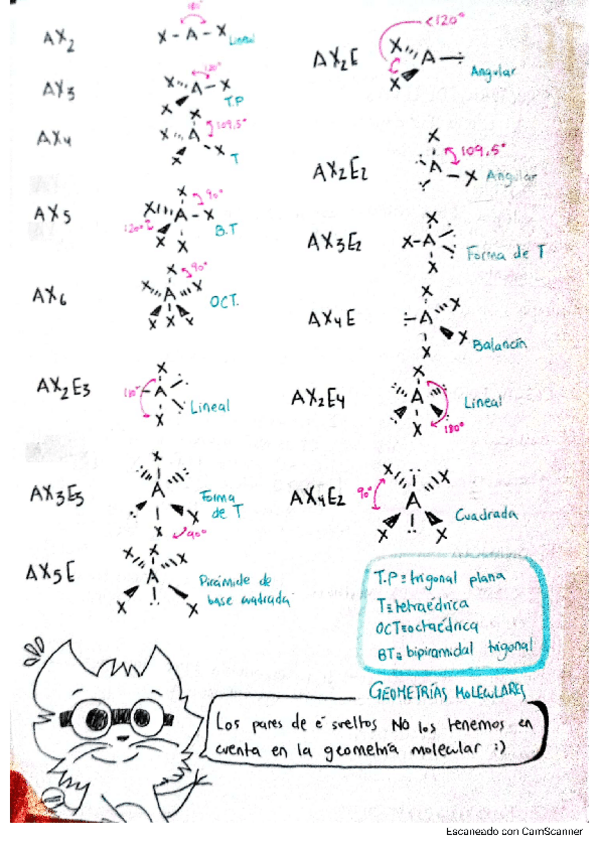 AX2
180°
X - A - X
Lineal
AX3
120°
X A - X
X
T.P
AX4
X
A
109,5°
X X
T
AX5
X
90°
X A - X
120°
X X
B.T
AX6
X
90°
X A X
X X X
OCT.
AX2E3
X
A
180°
X
Lineal
AX3E3
X
A
X X
90°
Forma
de T
AX5E
X
X X
A
X X
Pirámide de
base cuadrada
AX2E
<120°
X
A
X
Angular
AX2E2
X
109,5°
A - X
Angular
AX3E2
X
X-A
X
Forma de T
AX4E
X
X
A
X
X
Balancín
AX2E4
X
A
X
180°
Lineal
AX4E2
90°
X X
A
X X
Cuadrada
T.P = trigonal plana
T = tetraédrica
OCT = octaédrica
BT = bipiramidal trigonal
GEOMETRÍAS MOLECULARES
Los pares de é sueltos NO los tenemos en
cuenta en la geometría molecular :)
Escaneado con CamScanner